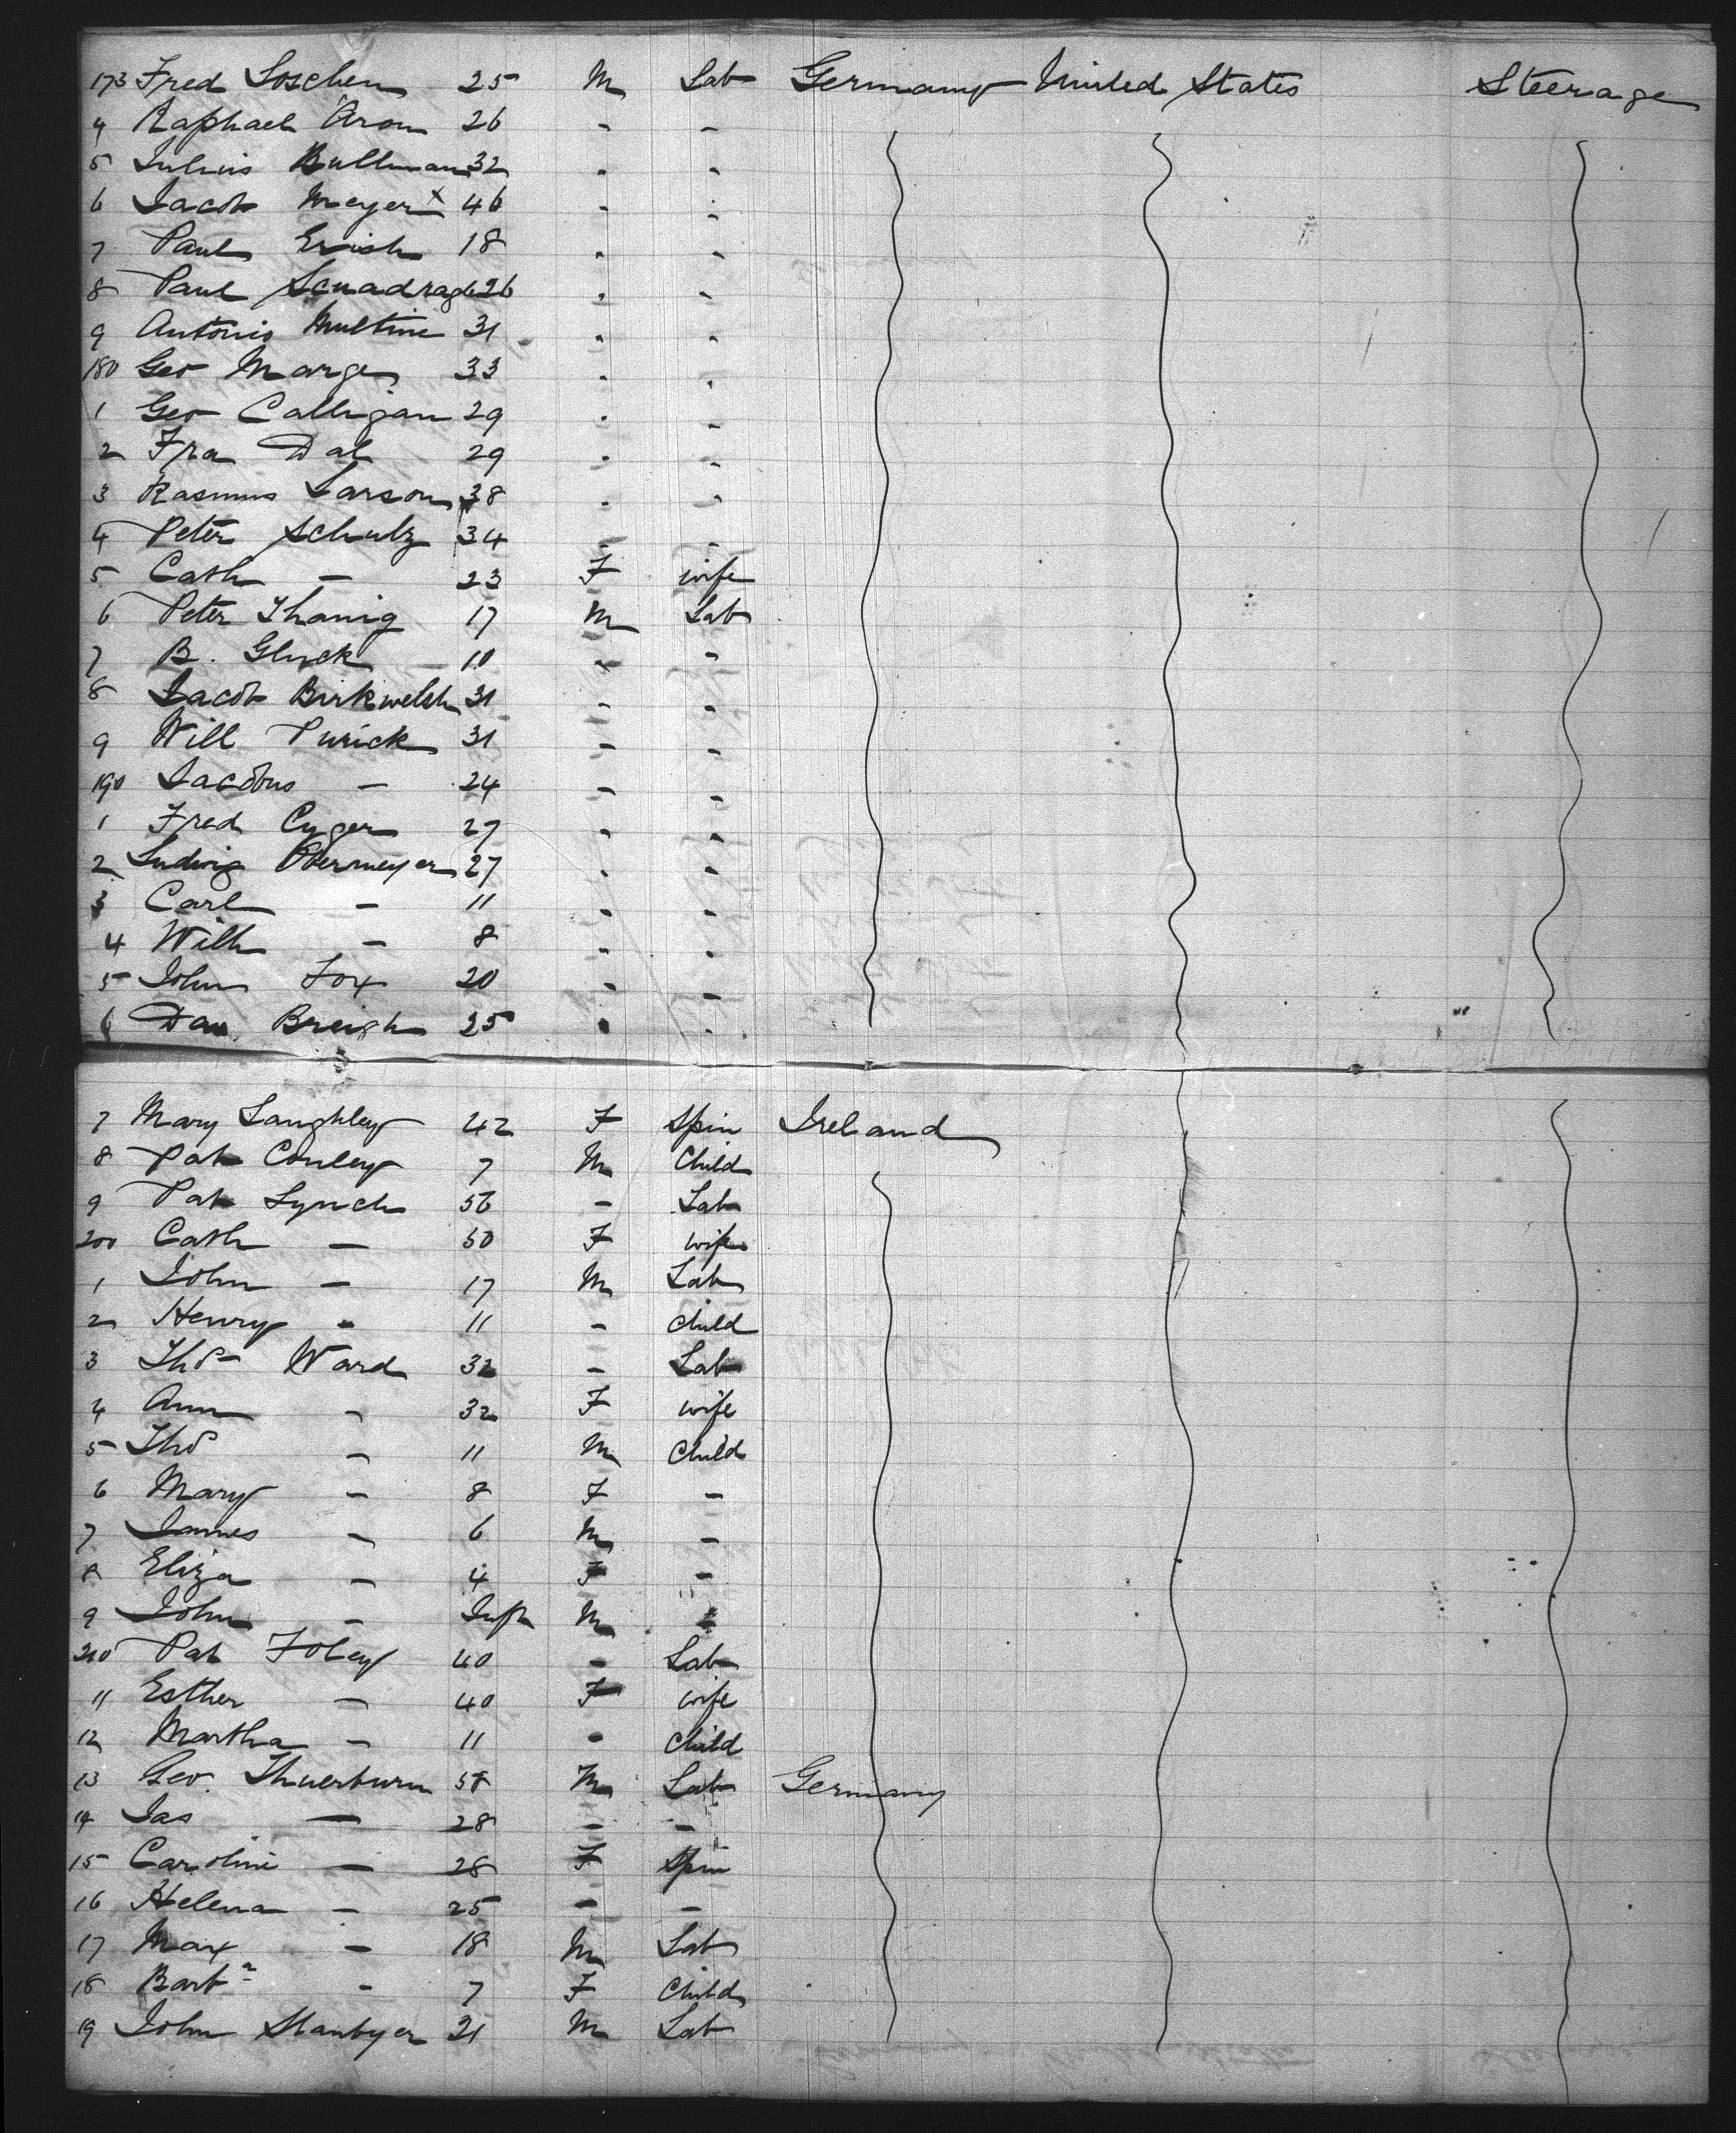 173 Fred Loschen 25 M Lab Germany United States Steerage
4 Raphael Aron 26 - -
5 Julius Bullman 32 " "
6 Jacob Meyer x 46 " "
7 Paul 18 " "
8 Paul 26 " "
9 Antonio Multine 31 " "
180 Geo Marge 33 " "
1 Geo Calligan 29 " -
2 Fra Dal 29 " -
3 Rasmus Larson 38 " "
4 Peter Schulz 34 - -
5 Cath - 23 F wife
6 Peter Thanig 17 M Lab
7 B. Gluck 10 " "
8 Jacob Birkwelsh 31 - "
9 Will Purick 31 - -
190 Jacobus - 24 - -
1 Fred Cyger 27 " "
2 Ludwig Obermeyer 27 " "
3 Carl - 11 - -
4 Wilh - 8 " "
5 John Fox 20 - -
6 Dan Breigh 25 " "
7 Mary Laughley 42 F Spin Ireland
8 Pat Conley 7 M Child
9 Pat Lynch 56 - Lab
200 Cath - 50 F wife
1 John - 17 M Lab
2 Henry - 11 - Child
3 Thos Ward 32 - Lab
4 Ann - 32 F wife
5 Thos - 11 M Child
6 Mary - 8 F -
7 James - 6 M -
8 Eliza - 4 F -
9 John - Inft M
210 Pat Foley 40 - Lab
11 Esther - 40 F wife
12 Martha - 11 " Child
13 Geo. Thuerburn M Lab Germany
14 Jas - 28 - -
15 Caroline - 28 F Spin
16 Helena - 25 - -
17 Max - 18 M Lab
18 Barba - 7 F Child
19 John Stanbyer 21 M Lab